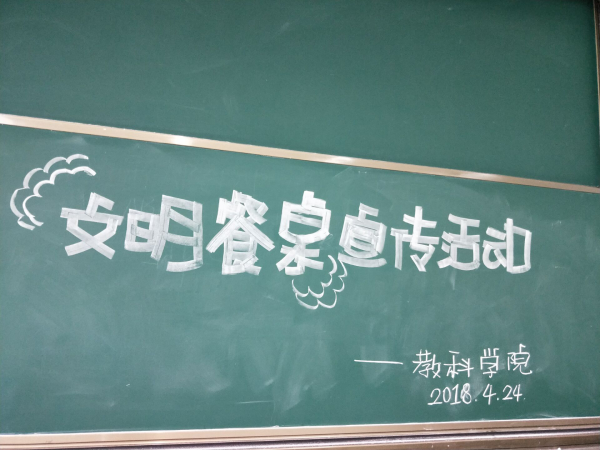 文明餐桌宣传活动
——教科学院
2018.4.24